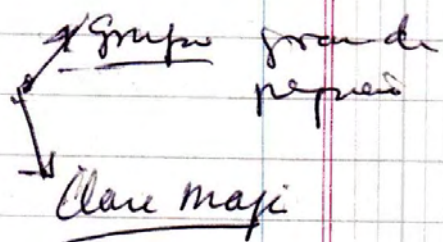 Grupo grande
pequeño
Clase magi